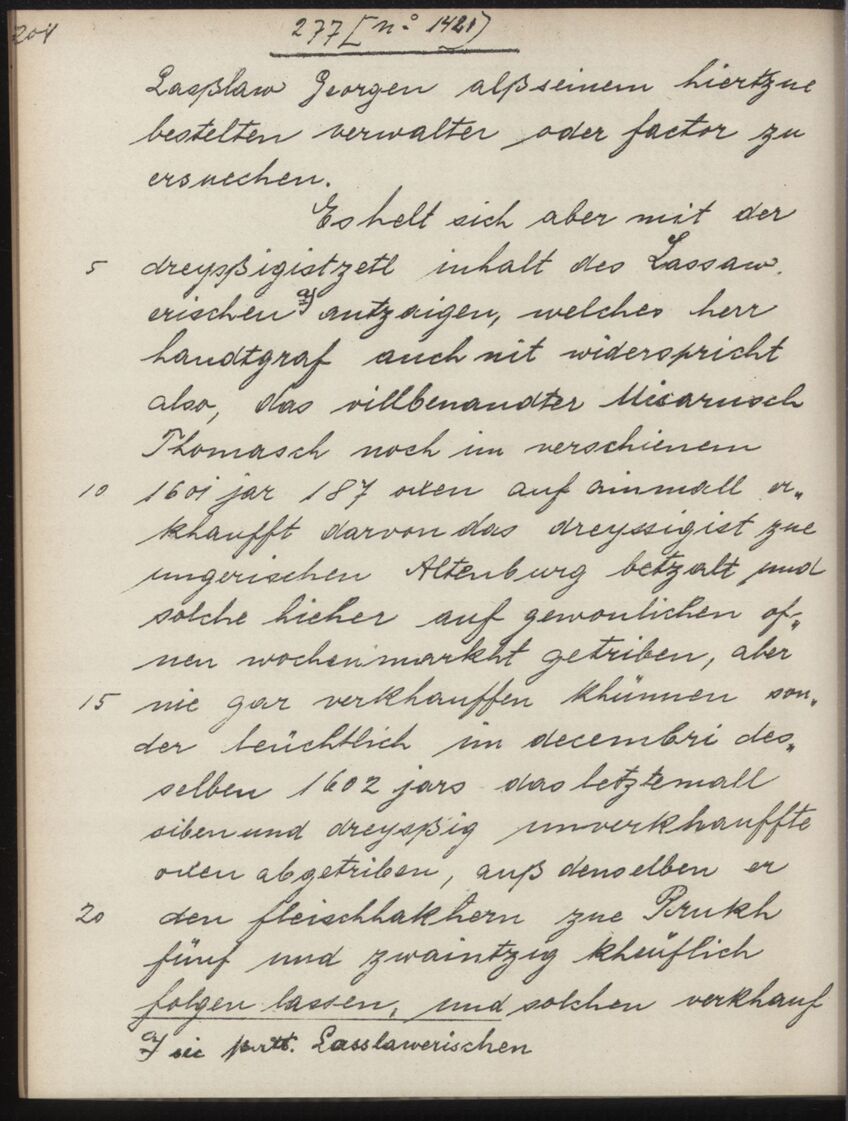 204
277 [n° 1421)
Lasßlaw Georgen alß seinem hiertzue
bestelten verwalter oder factor zu
ersuechen.
Es helt sich aber mit der
5 dreysßigistzetl inhalt des Lassaw-
erischen a) antzaigen, welches herr
handtgraf auch nit widerspricht
also, das villbenandter Misarusch
Thomasch noch im verschienem
10 1601 jar 187 oxen auf ainmall er„
khaufft darvon das dreyssigist zue
ungerischen Altenburg betzalt und
solche hieher auf gewonlichen of„
nen wochenmarkht getriben, aber
15 nie gar verkhauffen khünnen son„
der leüchtlich im decembri des„
selben 1602 jars das letztemall
siben und dreysßig unverkhauffte
oxen abgetriben, auß denselben er
20 den fleischhakhern zue Prukh
fünf und zwaintzig kheüflich
folgen lassen, und solchen verkhauf
a) sic Lasslawerischen